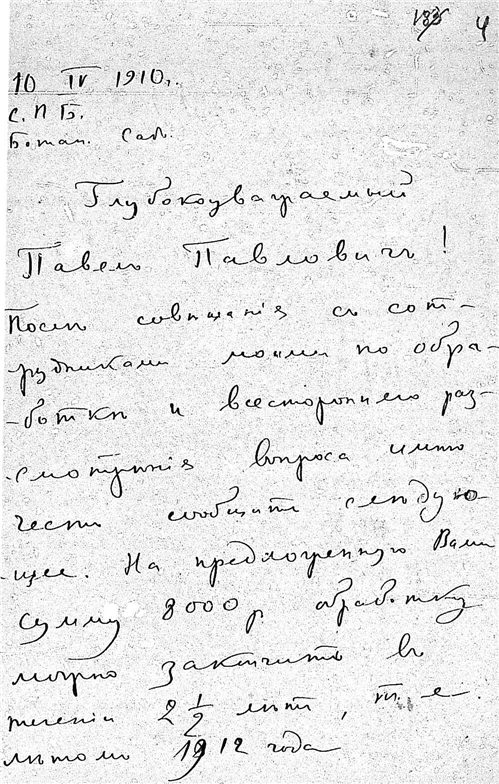 183 4
10 IV 1910 г.
С.П.Б.
Ботан. Сад.
Глубокоуважаемый
Павелъ Павловичъ!
Послѣ совѣщанія съ сот-
рудниками моими по обра-
-боткѣ и всесторонняго раз-
-смотрѣнія вопроса имѣю
честь сообщить слѣдую-
-щее. На предложенную Вами
сумму 8000 р обработку
можно закончить въ
теченіи 2 1/2 лѣтъ, т. е.
лѣтомъ 1912 года